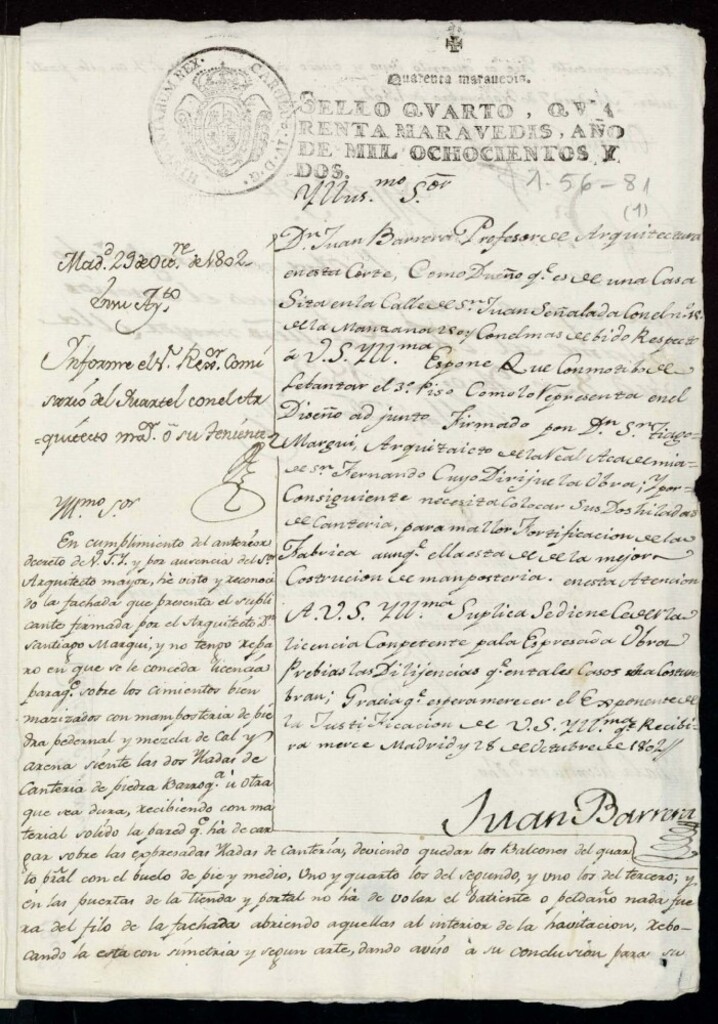 CAROLUS IV D. G. HISPANIARUM REX.
Quarenta maravedis.
SELLO QVARTO, QVA
RENTA MARAVEDIS, AÑO
DE MIL OCHOCIENTOS Y
DOS.
1-56-81
(1)
Yllus.mo S.or
Dn. Juan Barrera Profesor de Arquitectura
en esta Corte, Como Dueño q.e es de una Casa
Sita en la Calle de Sn. Juan Señalada Con el n.o
de la Manzana y Con el mas debido Respecto
á V.S. Yll.ma Espone Que Con motibo de
Lebantar el 3.o Piso Como lo Representa en el
Diseño adjunto Firmado por Dn. Sn.tiago
Margui, Arquitaicto de la Real Academia
de Sn. Fernando Cuyo Dirije la Obra; Y por
Consiguiente necesita Colocar Sus Dos hiladas
de Canteria, para mallor Fortificacion de la
Fabrica aunq.e ella esta de la mejor
Costrucion de manposteria. en esta Atencion
A. V.S. Yll.ma Suplica Se diene Cederla
licencia Conpetente pa la Espresada Obra
Prebias las Dilijencias q.e en tales Casos se a Costun
bran; Gracia q.e espera merecer el Exponente de
la Justificacion de V.S. Yll.ma q.e Recibi
ra merce Madrid y 28 de Octubre de 1802//
Juan Barrera
Mad.d 29 de Oct.re de 1802
En su Ay.to
Informe el S. Reg.or Comi
sario del Quartel con el Ar
quitecto ma.r ó su tenien.te
Yll.mo S.or
En cumplimiento del anterior
decreto de V.S.Y. y por ausencia del S.r
Arquitecto mayor, he visto y reconoci
do la fachada que presenta el supli
cante firmada por el Arquitecto Dn.
Santiago Margui, y no tengo repa
ro en que se le conceda licencia
para q.e sobre los cimientos bien
mazizados con mamposteria de pie
dra pedernal y mezcla de Cal y
arena siente las dos Yladas de
Canteria de piedra Barroq.a ú otra
que sea dura, recibiendo con ma
terial solido la pared q.e há de car
gar sobre las expresadas Yladas de Cantería, deviendo quedar los Balcones del quar
to pral con el buelo de pie y medio, Uno y quarto los del segundo, y uno los del tercero; y
en las puertas de la tienda y portal no há de volar el batiente o peldaño nada fue
ra del filo de la fachada abriendo aquellas al interior de la havitacion, rebo
cando la esta con simetria y segun arte, dando aviso à su conclusión para su